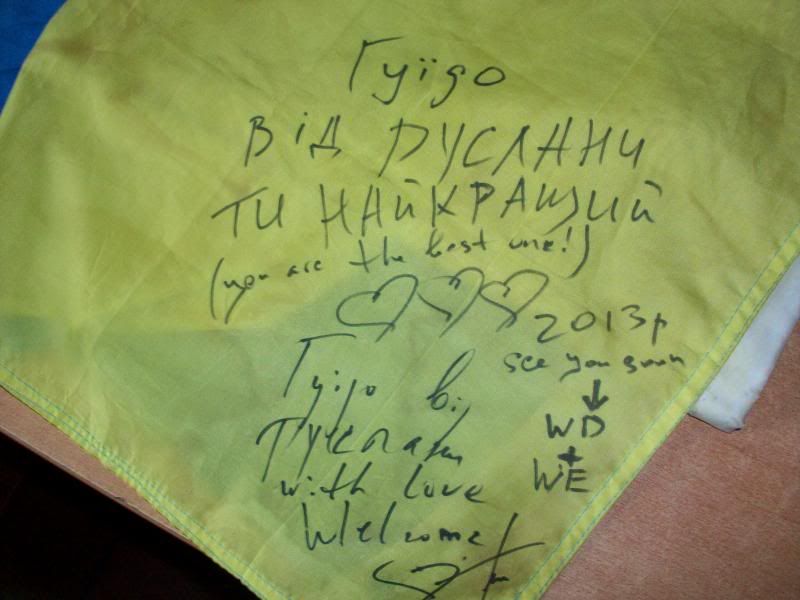 Гуїдо
ВІД РУСЛАНИ
ТИ НАЙКРАЩИЙ
(you are the best one!)
2013р
see you soon
WD
+
WE
Гуїдо від
Руслани
with love
Welcome!